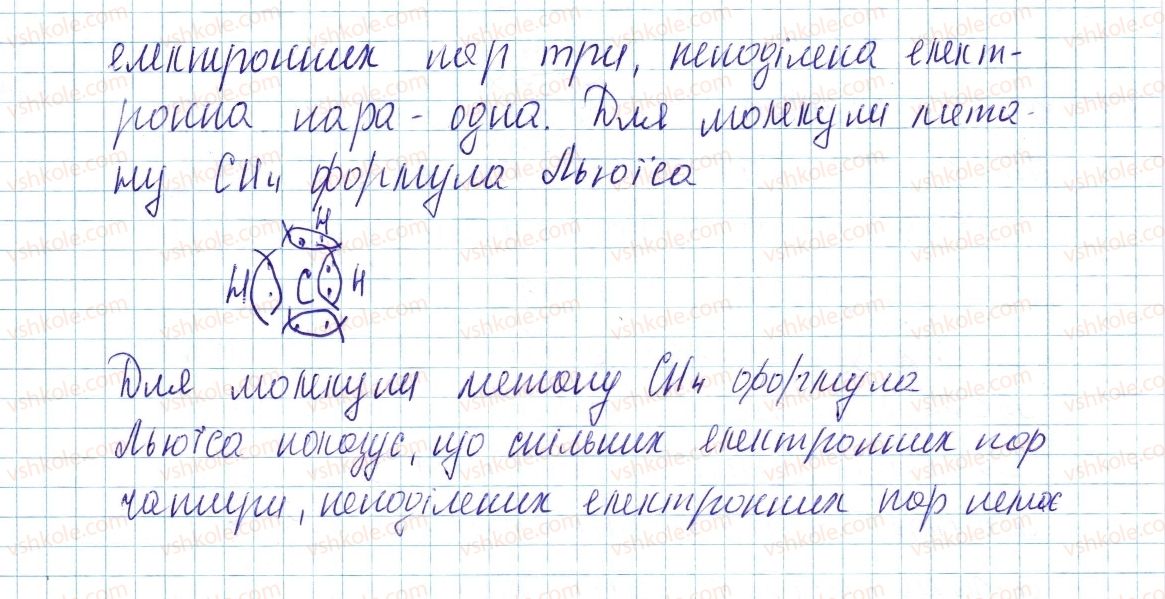 електронних пар три, неподілена елект-
ронна пара - одна. Для молекули мета-
ну CH4 формула Льюїса
H
H C H
Для молекули метану CH4 формула
Льюїса показує, що спільних електронних пар
чотири, неподілених електронних пар немає